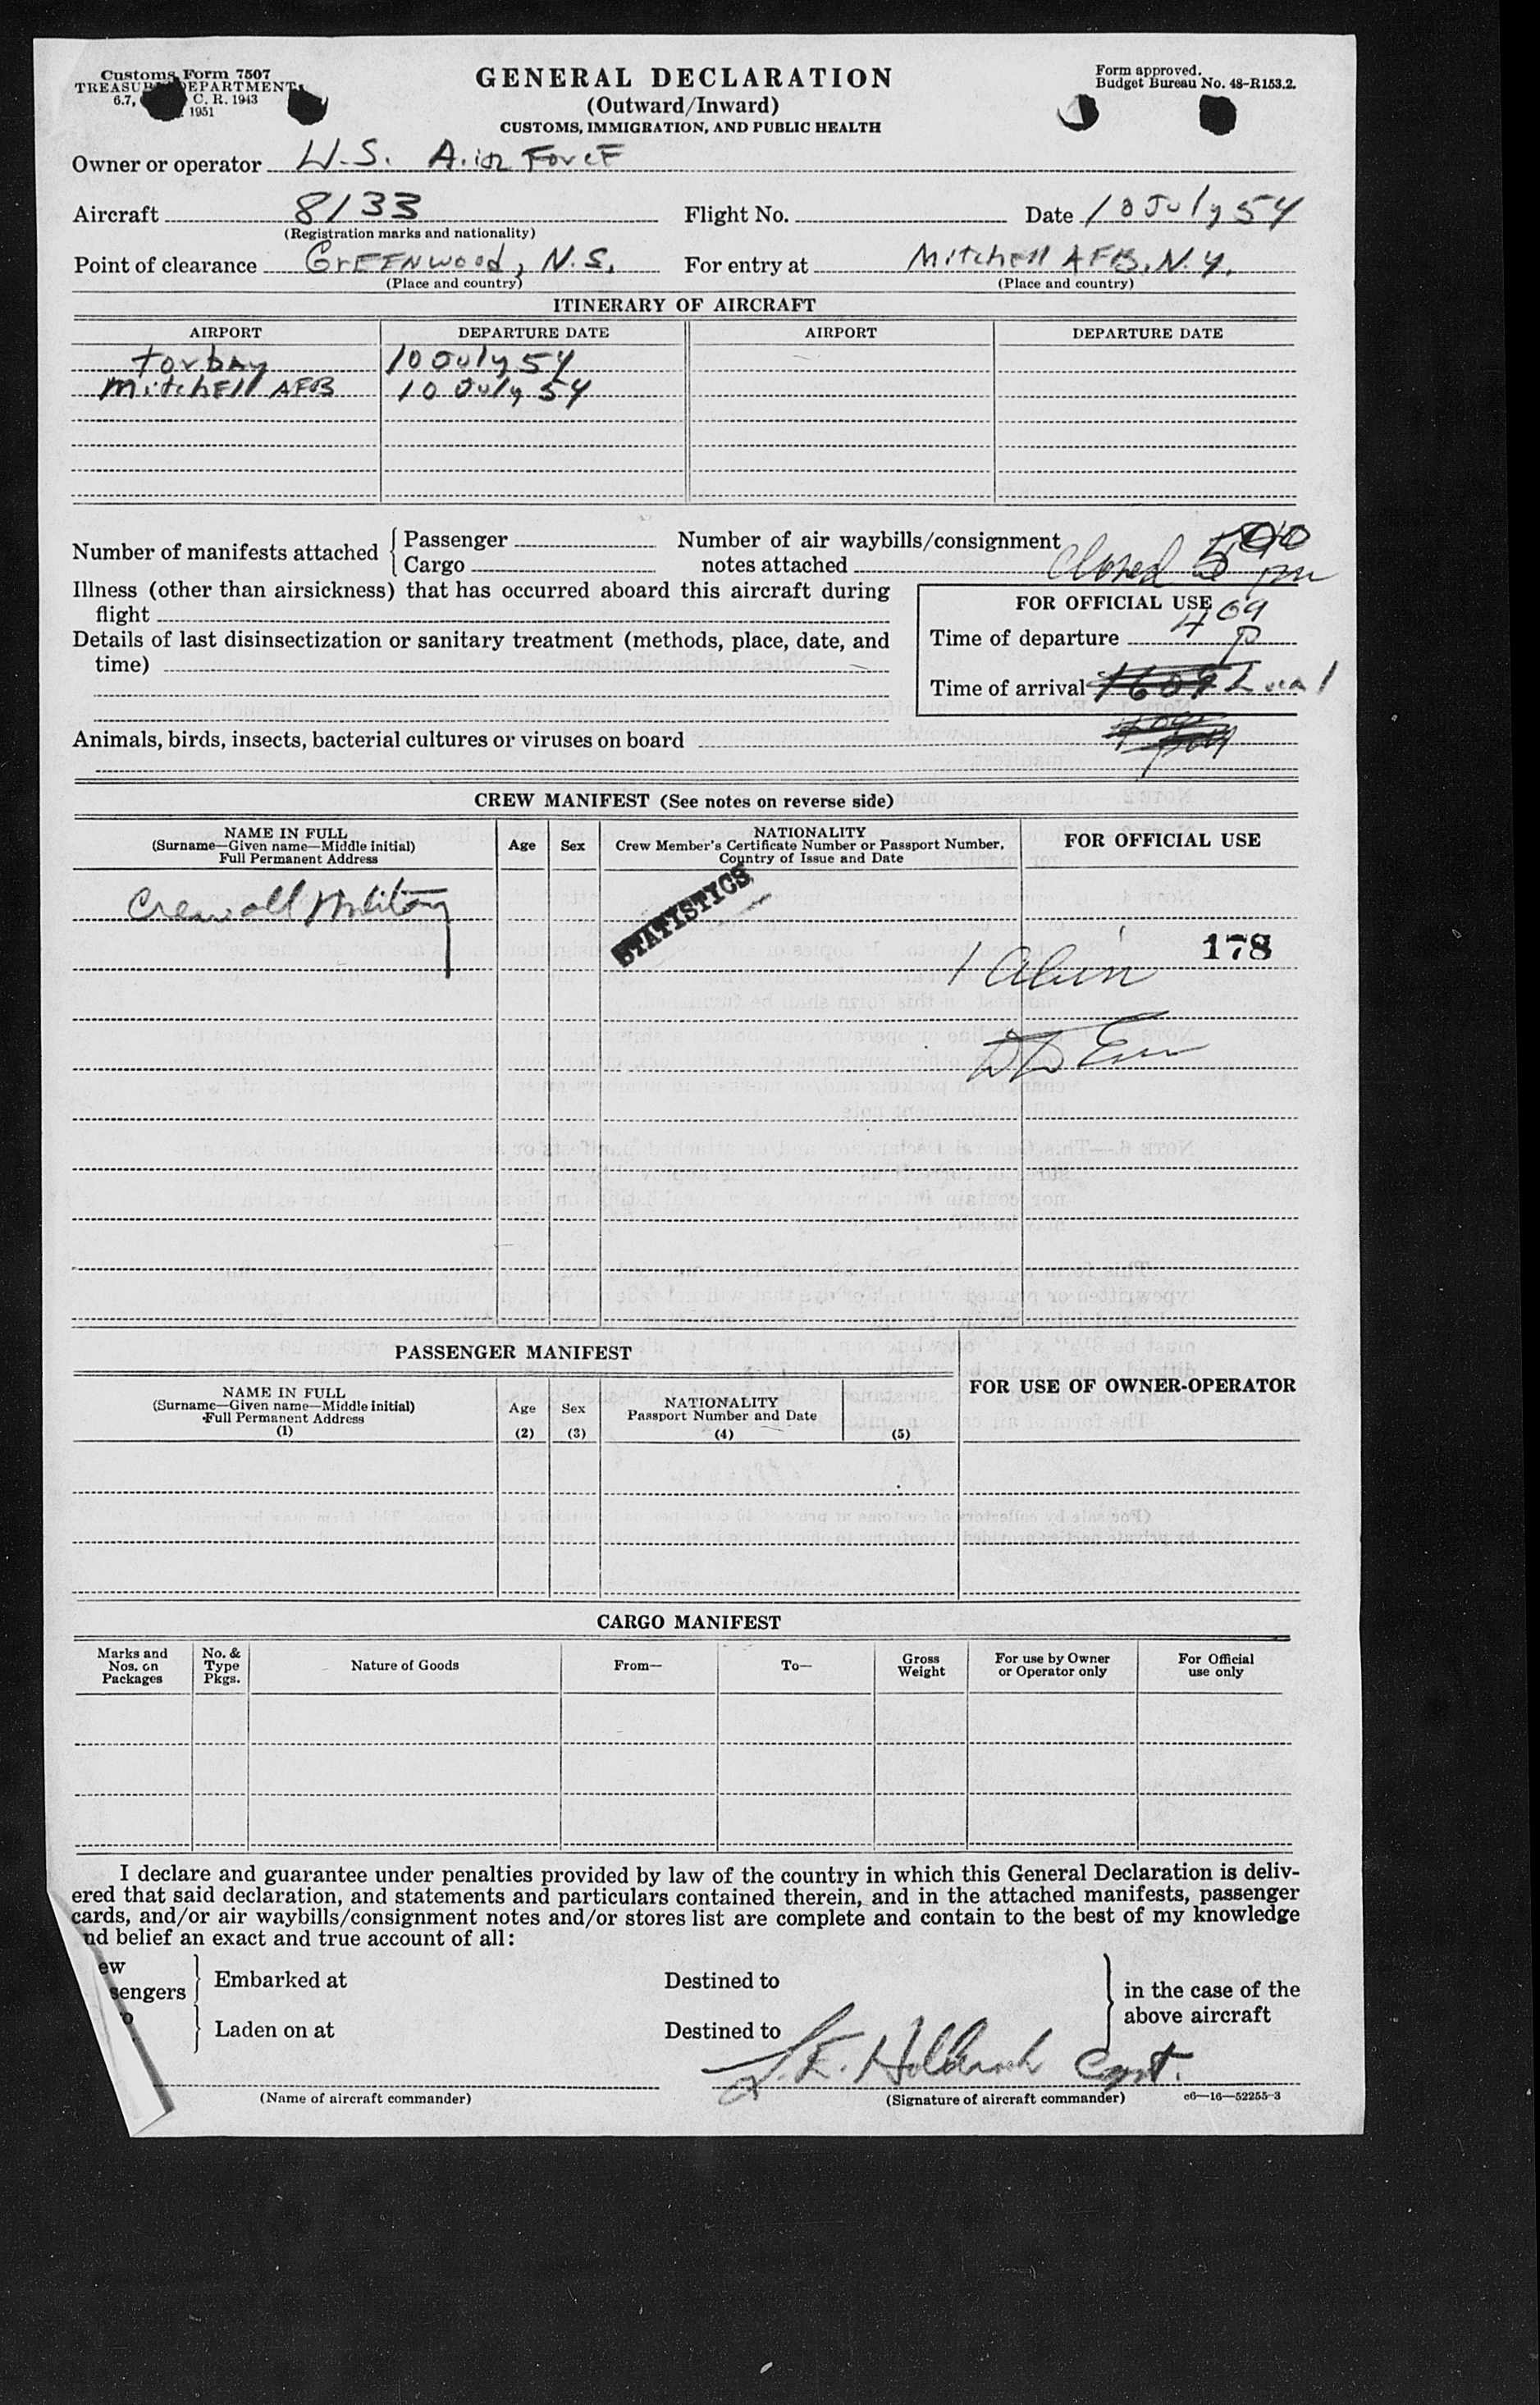 Customs Form 7507
TREASURY DEPARTMENT
6.7, C. R. 1943
1951
GENERAL DECLARATION
(Outward/Inward)
CUSTOMS, IMMIGRATION, AND PUBLIC HEALTH
Form approved.
Budget Bureau No. 48-R153.2.
Owner or operator U.S. Air Force
Aircraft 8133 Flight No. Date 10 July 54
(Registration marks and nationality)
Point of clearance Greenwood, N.S. For entry at Mitchell AFB, N.Y.
(Place and country) (Place and country)
ITINERARY OF AIRCRAFT
AIRPORT DEPARTURE DATE AIRPORT DEPARTURE DATE
Torbay 10 July 54
Mitchell AFB 10 July 54
Number of manifests attached { Passenger
Cargo
Number of air waybills/consignment
notes attached
Closed 500 pm
Illness (other than airsickness) that has occurred aboard this aircraft during
flight
Details of last disinsectization or sanitary treatment (methods, place, date, and
time)
FOR OFFICIAL USE
Time of departure 409 P
Time of arrival 1609 Local
Animals, birds, insects, bacterial cultures or viruses on board
CREW MANIFEST (See notes on reverse side)
NAME IN FULL
(Surname—Given name—Middle initial)
Full Permanent Address
Age
Sex
NATIONALITY
Crew Member's Certificate Number or Passport Number,
Country of Issue and Date
FOR OFFICIAL USE
Crew all Military
STATISTICS
178
1
PASSENGER MANIFEST
NAME IN FULL
(Surname—Given name—Middle initial)
Full Permanent Address
(1)
Age
(2)
Sex
(3)
NATIONALITY
Passport Number and Date
(4)
(5)
FOR USE OF OWNER-OPERATOR
CARGO MANIFEST
Marks and
Nos. on
Packages
No. &
Type
Pkgs.
Nature of Goods
From—
To—
Gross
Weight
For use by Owner
or Operator only
For Official
use only
I declare and guarantee under penalties provided by law of the country in which this General Declaration is deliv-
ered that said declaration, and statements and particulars contained therein, and in the attached manifests, passenger
cards, and/or air waybills/consignment notes and/or stores list are complete and contain to the best of my knowledge
nd belief an exact and true account of all:
ew
sengers } Embarked at Destined to
o } Laden on at Destined to
} in the case of the
above aircraft
Capt.
(Name of aircraft commander) (Signature of aircraft commander) c6—16—52255-3